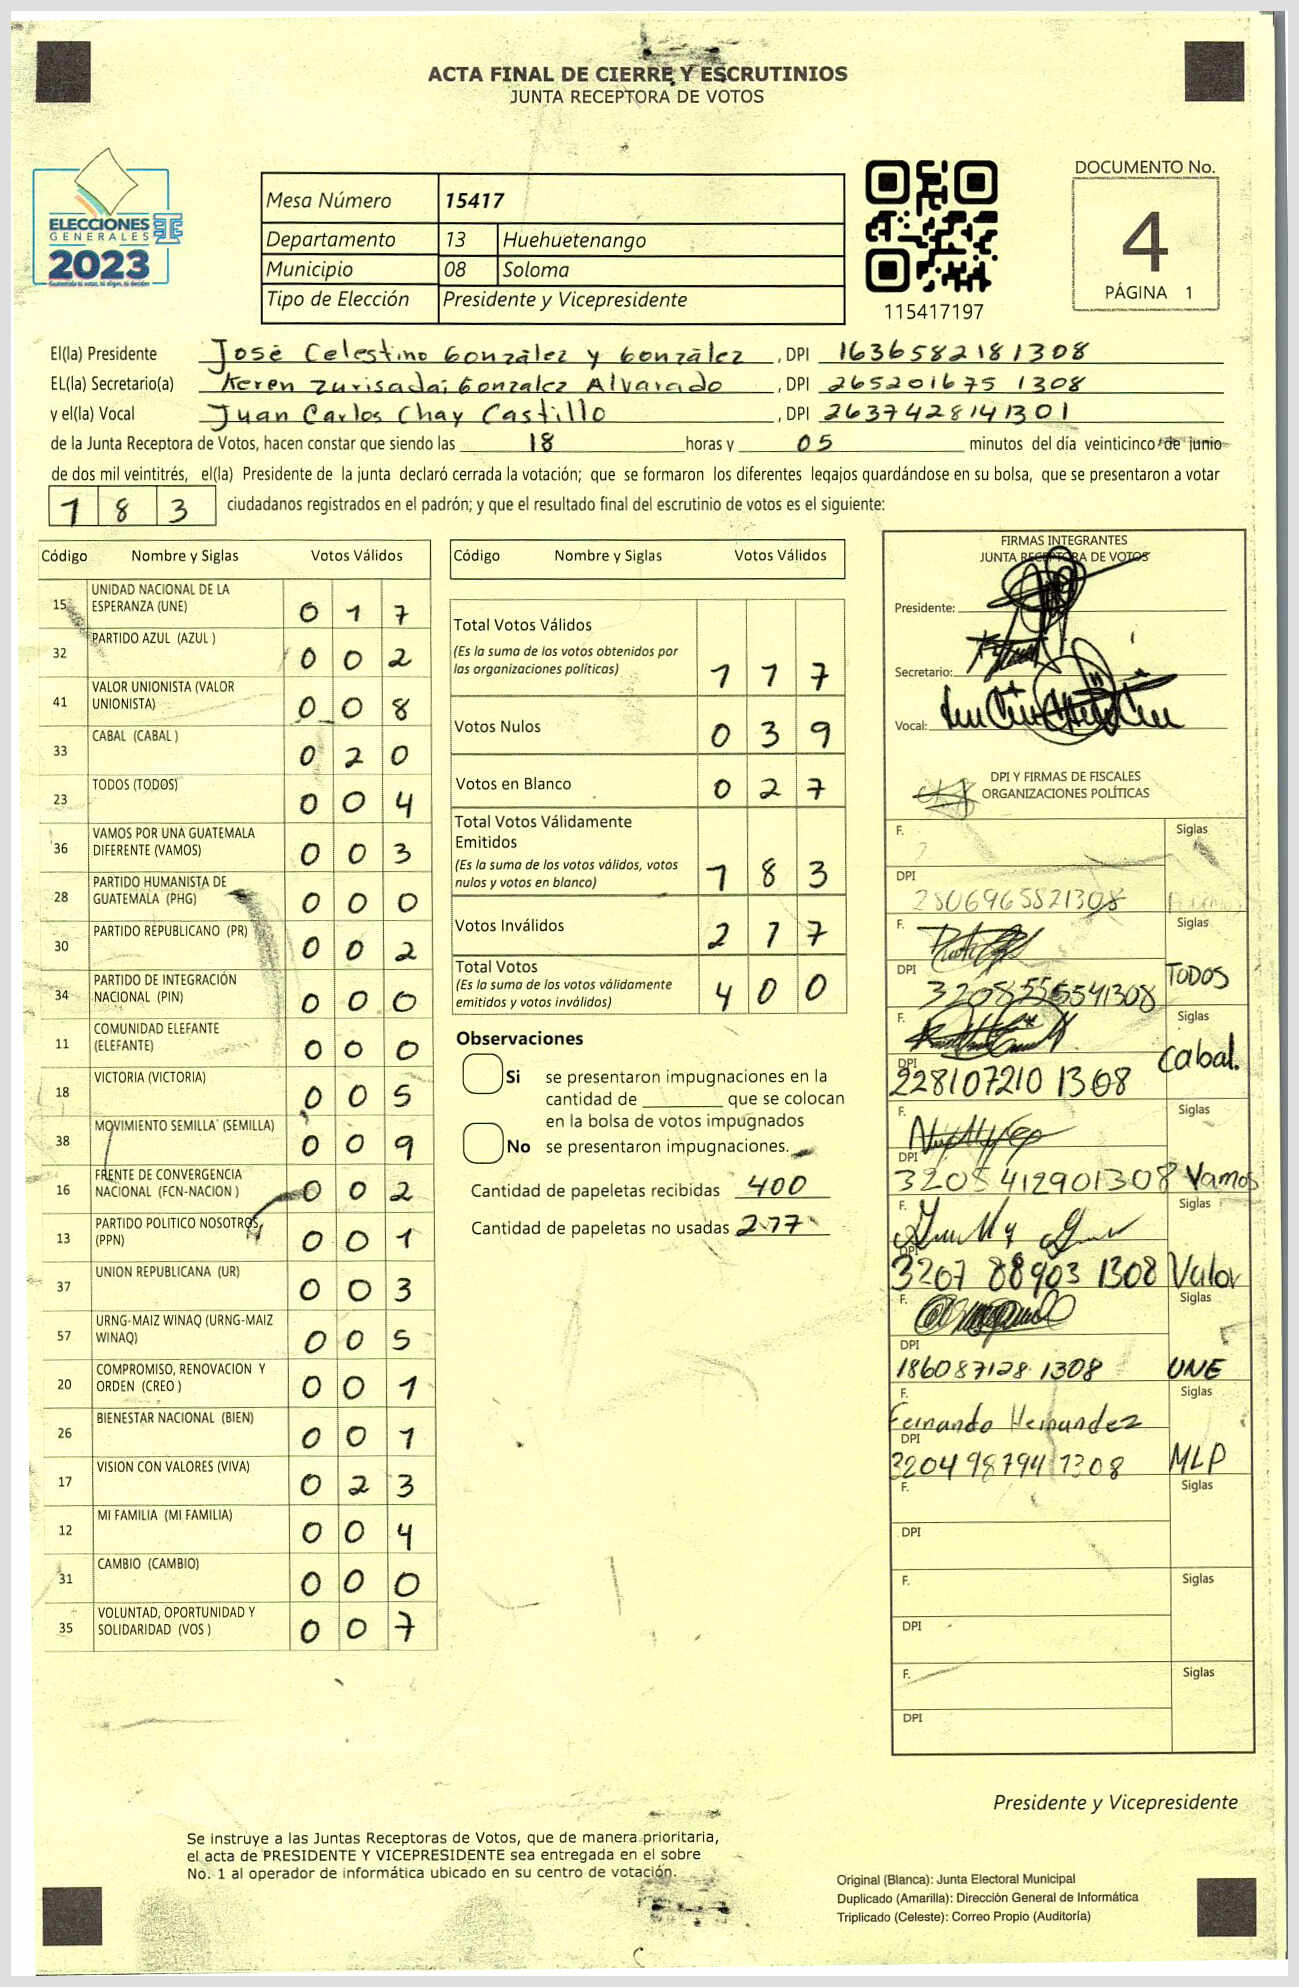 ACTA FINAL DE CIERRE Y ESCRUTINIOS
JUNTA RECEPTORA DE VOTOS
ELECCIONES
GENERALES
2023
Mesa Número 15417
Departamento 13 Huehuetenango
Municipio 08 Soloma
Tipo de Elección Presidente y Vicepresidente
115417197
DOCUMENTO No.
4
PÁGINA 1
El(la) Presidente José Celestino González y González , DPI 1636582181308
EL(la) Secretario(a) Keren Zurisadai Gonzalez Alvarado , DPI 265201675 1308
y el(la) Vocal Juan Carlos Chay Castillo , DPI 2637428141301
de la Junta Receptora de Votos, hacen constar que siendo las 18 horas y 05 minutos del día veinticinco de junio
de dos mil veintitrés, el(la) Presidente de la junta declaró cerrada la votación; que se formaron los diferentes legajos guardándose en su bolsa, que se presentaron a votar
183 ciudadanos registrados en el padrón; y que el resultado final del escrutinio de votos es el siguiente:
Código Nombre y Siglas Votos Válidos
15 UNIDAD NACIONAL DE LA ESPERANZA (UNE) 0 1 7
32 PARTIDO AZUL (AZUL ) 0 0 2
41 VALOR UNIONISTA (VALOR UNIONISTA) 0 0 8
33 CABAL (CABAL ) 0 2 0
23 TODOS (TODOS) 0 0 4
36 VAMOS POR UNA GUATEMALA DIFERENTE (VAMOS) 0 0 3
28 PARTIDO HUMANISTA DE GUATEMALA (PHG) 0 0 0
30 PARTIDO REPUBLICANO (PR) 0 0 2
34 PARTIDO DE INTEGRACIÓN NACIONAL (PIN) 0 0 0
11 COMUNIDAD ELEFANTE (ELEFANTE) 0 0 0
18 VICTORIA (VICTORIA) 0 0 5
38 MOVIMIENTO SEMILLA (SEMILLA) 0 0 9
16 FRENTE DE CONVERGENCIA NACIONAL (FCN-NACION ) 0 0 2
13 PARTIDO POLITICO NOSOTROS (PPN) 0 0 1
37 UNION REPUBLICANA (UR) 0 0 3
57 URNG-MAIZ WINAQ (URNG-MAIZ WINAQ) 0 0 5
20 COMPROMISO, RENOVACION Y ORDEN (CREO ) 0 0 1
26 BIENESTAR NACIONAL (BIEN) 0 0 1
17 VISION CON VALORES (VIVA) 0 2 3
12 MI FAMILIA (MI FAMILIA) 0 0 4
31 CAMBIO (CAMBIO) 0 0 0
35 VOLUNTAD, OPORTUNIDAD Y SOLIDARIDAD (VOS ) 0 0 7
Código Nombre y Siglas Votos Válidos
Total Votos Válidos
(Es la suma de los votos obtenidos por
las organizaciones políticas) 1 1 7
Votos Nulos 0 3 9
Votos en Blanco 0 2 7
Total Votos Válidamente
Emitidos
(Es la suma de los votos válidos, votos
nulos y votos en blanco) 1 8 3
Votos Inválidos 2 1 7
Total Votos
(Es la suma de los votos válidamente
emitidos y votos inválidos) 4 0 0
Observaciones
Si se presentaron impugnaciones en la
cantidad de ________ que se colocan
en la bolsa de votos impugnados
No se presentaron impugnaciones.
Cantidad de papeletas recibidas 400
Cantidad de papeletas no usadas 217
FIRMAS INTEGRANTES
JUNTA RECEPTORA DE VOTOS
Presidente:
Secretario:
Vocal:
DPI Y FIRMAS DE FISCALES
ORGANIZACIONES POLÍTICAS
F. Siglas
DPI 2806965821308
F. Siglas
DPI 3208555541308 TODOS
F. Siglas
DPI 228107210 1308 Cabal.
F. Siglas
DPI 3205412901308 Vamos
F. Siglas
DPI 3207 88903 1308 Valor
F. Siglas
DPI 186087128 1308 UNE
F. Fernando Hernandez Siglas
DPI 3204987941308 MLP
F. Siglas
DPI
F. Siglas
DPI
F. Siglas
DPI
Presidente y Vicepresidente
Se instruye a las Juntas Receptoras de Votos, que de manera prioritaria,
el acta de PRESIDENTE Y VICEPRESIDENTE sea entregada en el sobre
No. 1 al operador de informática ubicado en su centro de votación.
Original (Blanca): Junta Electoral Municipal
Duplicado (Amarilla): Dirección General de Informática
Triplicado (Celeste): Correo Propio (Auditoría)